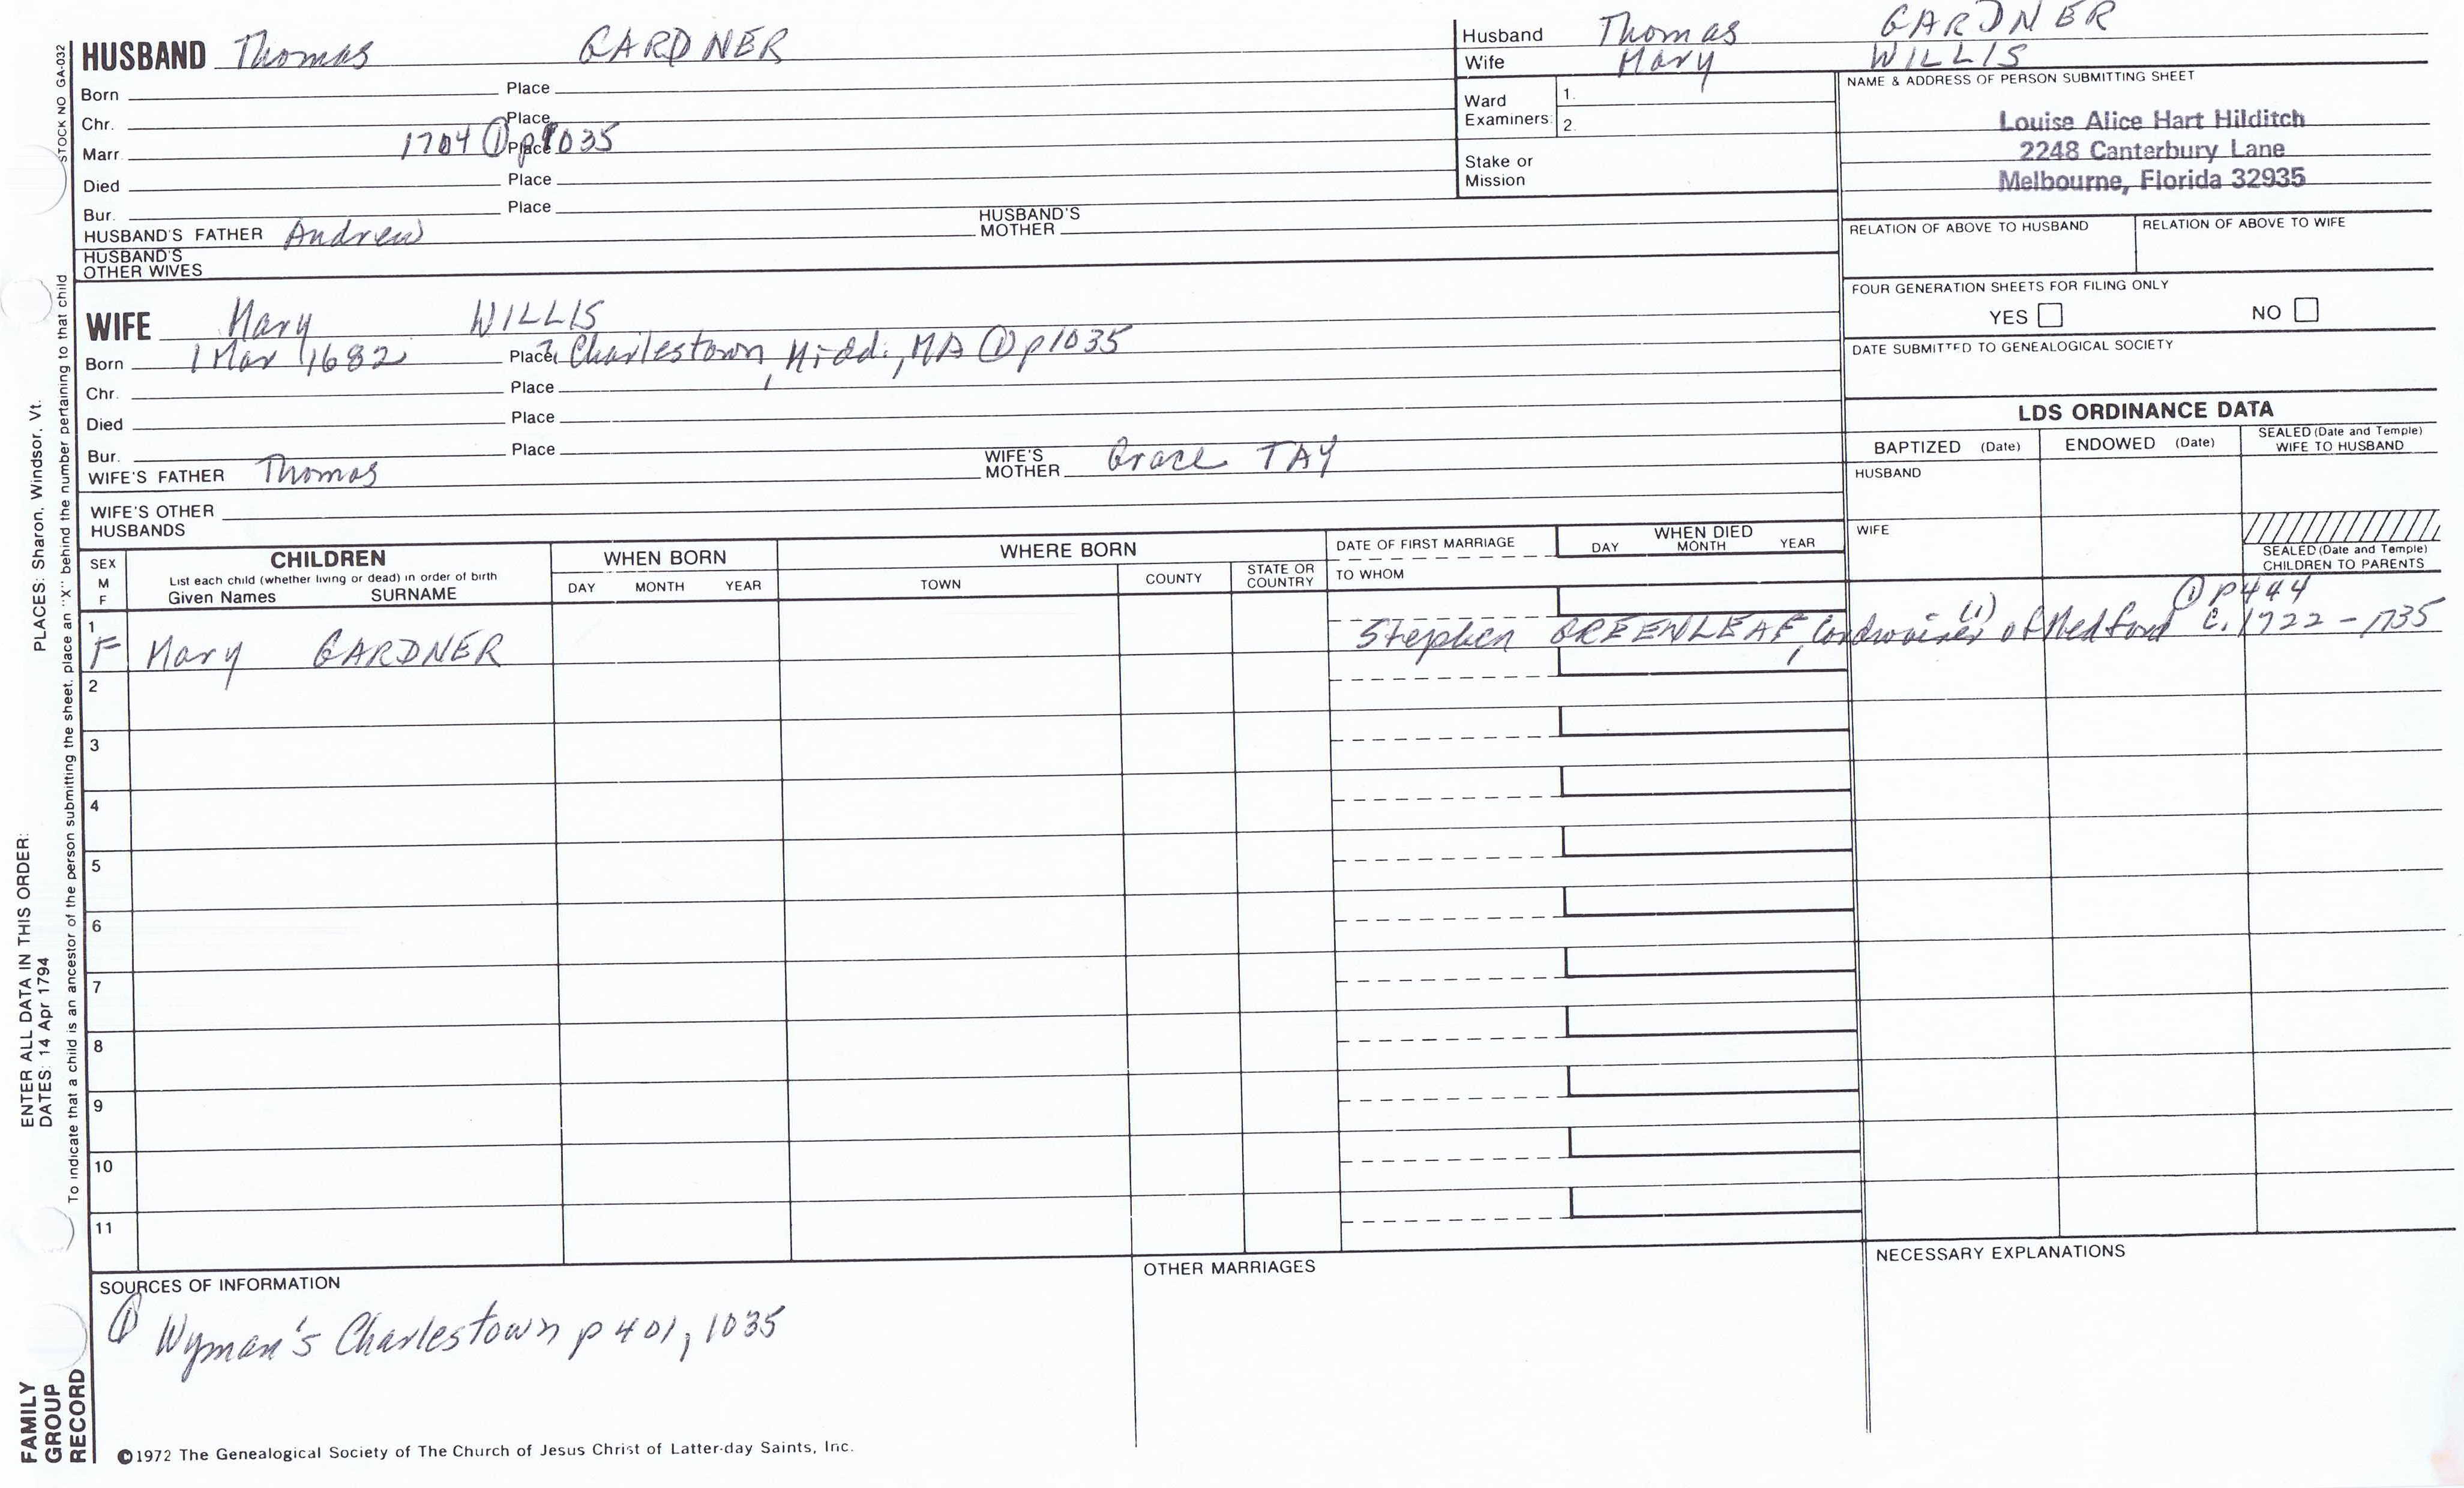 HUSBAND Thomas GARDNER
Born Place
Chr. Place
Marr. 1704 ① p1035 Place
Died Place
Bur. Place
HUSBAND'S FATHER Andrew HUSBAND'S MOTHER
HUSBAND'S OTHER WIVES
WIFE Mary WILLIS
Born 1 Mar 1682 Place ? Charlestown, Midd., MA ① p1035
Chr. Place
Died Place
Bur. Place
WIFE'S FATHER Thomas WIFE'S MOTHER Grace TAY
WIFE'S OTHER HUSBANDS
Husband Thomas GARDNER
Wife Mary WILLIS
Ward Examiners: 1.
2.
Stake or Mission
NAME & ADDRESS OF PERSON SUBMITTING SHEET
Louise Alice Hart Hilditch
2248 Canterbury Lane
Melbourne, Florida 32935
RELATION OF ABOVE TO HUSBAND RELATION OF ABOVE TO WIFE
FOUR GENERATION SHEETS FOR FILING ONLY
YES NO
DATE SUBMITTED TO GENEALOGICAL SOCIETY
LDS ORDINANCE DATA
BAPTIZED (Date) ENDOWED (Date) SEALED (Date and Temple) WIFE TO HUSBAND
HUSBAND
WIFE
SEALED (Date and Temple) CHILDREN TO PARENTS
SEX M F
CHILDREN
List each child (whether living or dead) in order of birth
Given Names SURNAME
WHEN BORN
DAY MONTH YEAR
WHERE BORN
TOWN COUNTY STATE OR COUNTRY
DATE OF FIRST MARRIAGE
TO WHOM
WHEN DIED
DAY MONTH YEAR
① p444
1 F Mary GARDNER Stephen GREENLEAF, Cordwainer (1) of Medford c. 1722 - 1735
2
3
4
5
6
7
8
9
10
11
SOURCES OF INFORMATION
① Wyman's Charlestown p 401, 1035
OTHER MARRIAGES
NECESSARY EXPLANATIONS
©1972 The Genealogical Society of The Church of Jesus Christ of Latter-day Saints, Inc.
STOCK NO GA-032
To indicate that a child is an ancestor of the person submitting the sheet, place an "X" behind the number pertaining to that child
ENTER ALL DATA IN THIS ORDER:
DATES: 14 Apr 1794 PLACES: Sharon, Windsor, Vt.
FAMILY
GROUP
RECORD